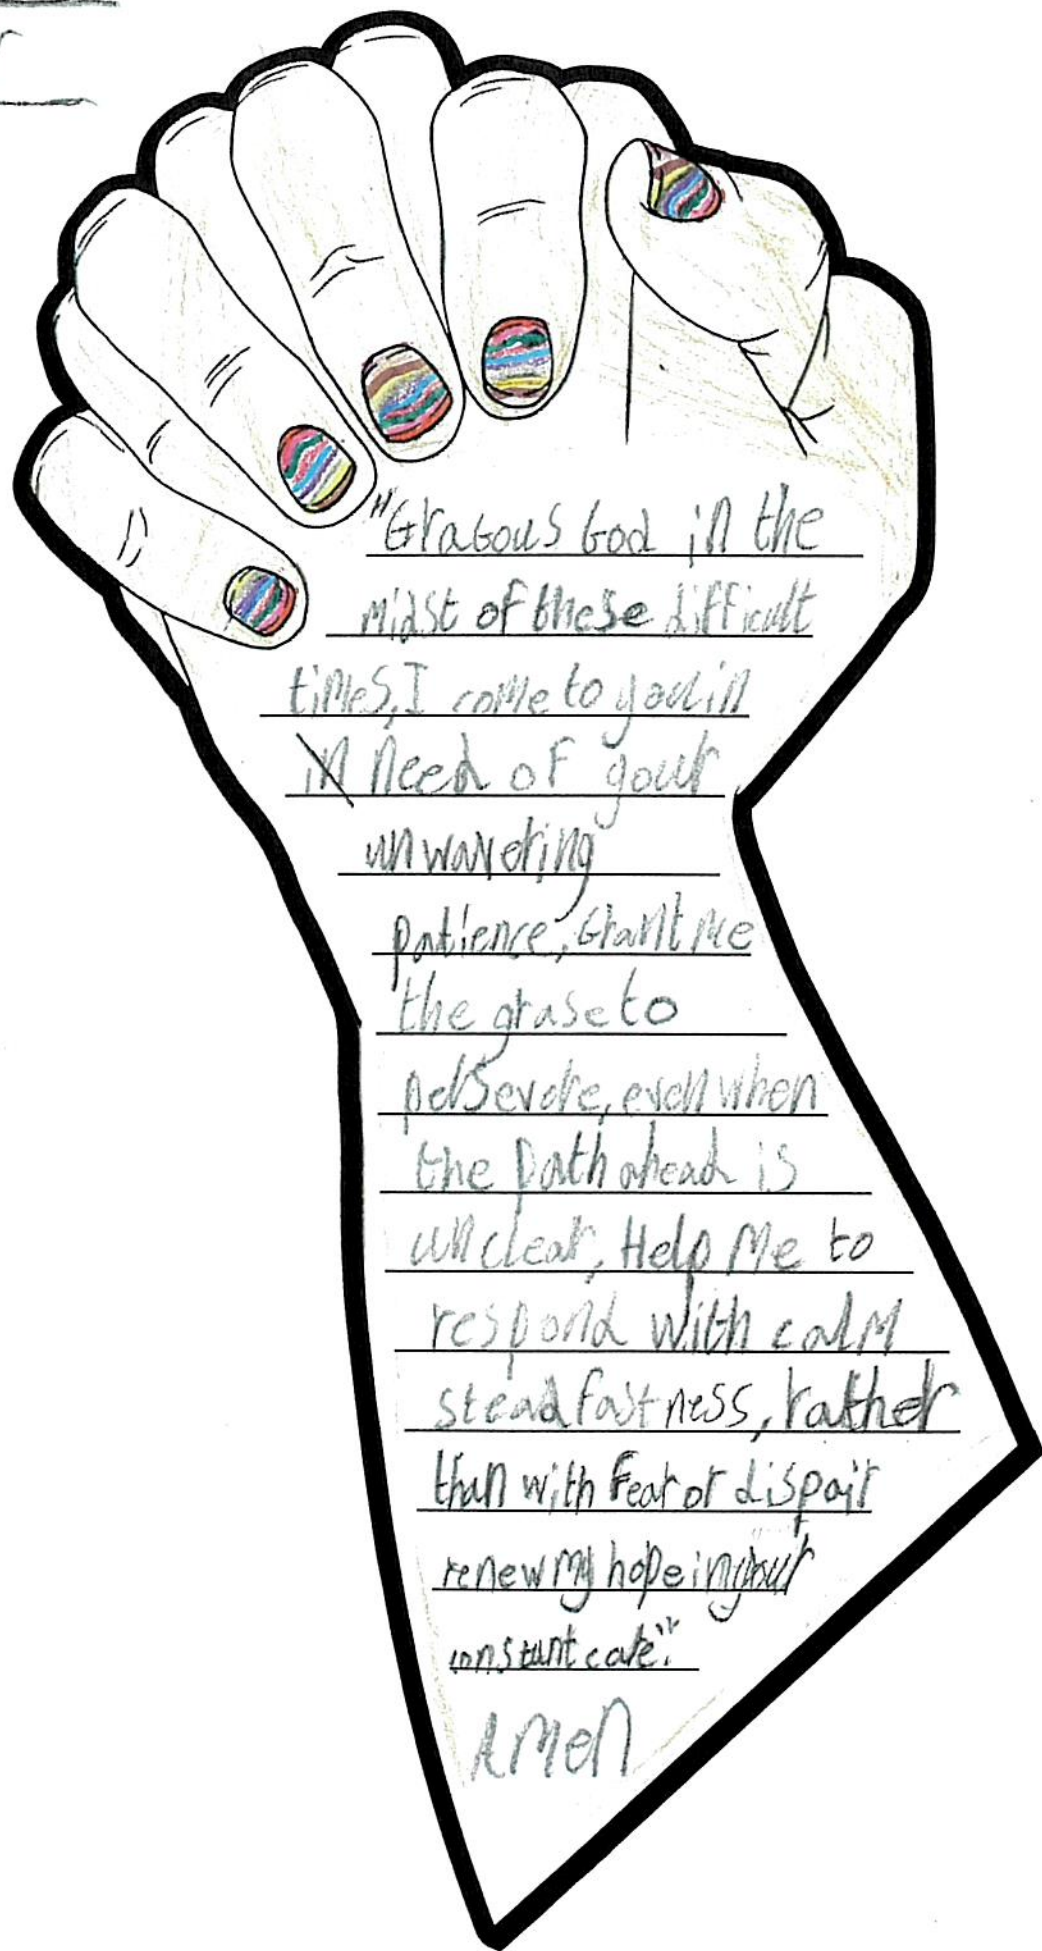 "Gracous God in the
midst of these difficult
times, I come to you in
in need of your
unwavering
patience, Grant me
the grase to
persevere, even when
the path ahead is
unclear, Help me to
respond with calm
steadfastness, rather
than with fear or dispair
renew my hope in your
constant care."
Amen